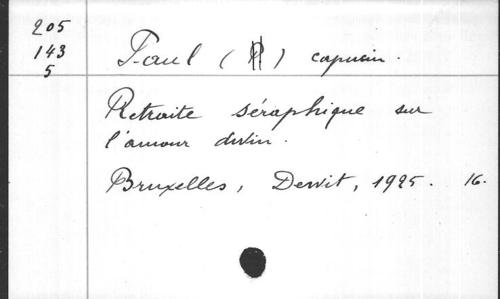 205
143
5
Paul ( ) capucin.
Retraite séraphique sur
l'amour divin.
Bruxelles, Dewit, 1925. 16.